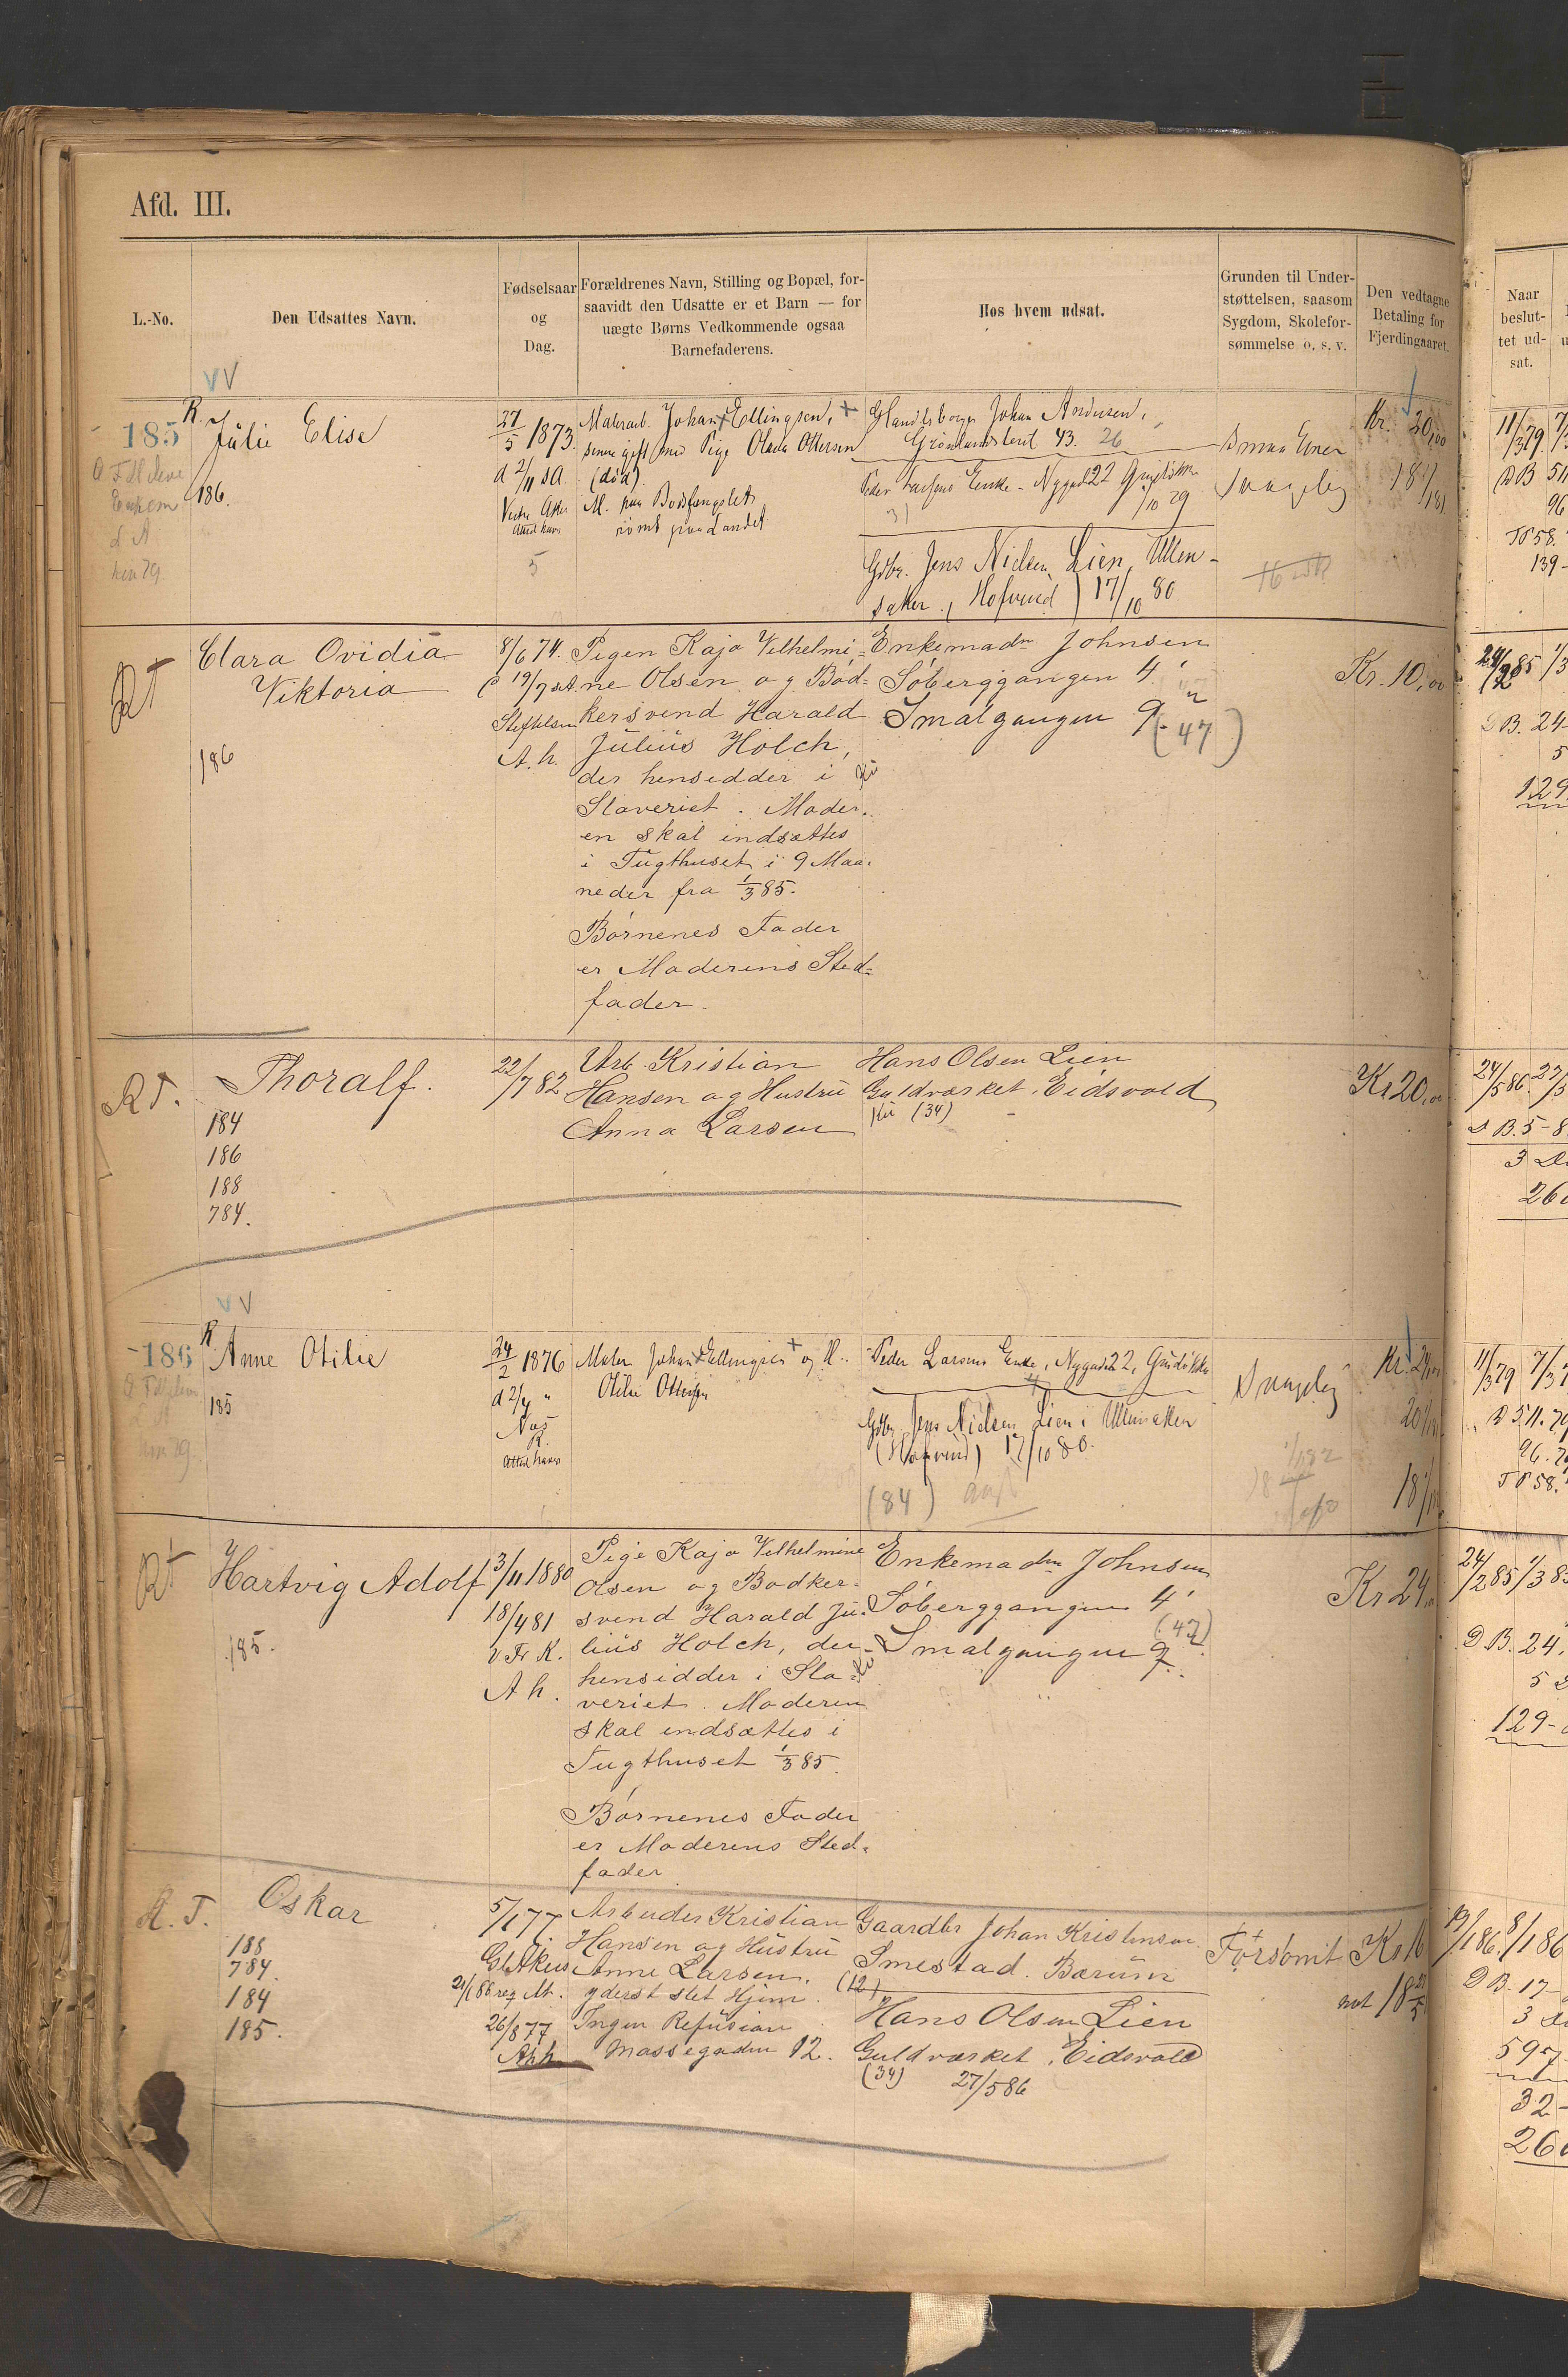 Afd. III.
L.-No.
Den Udsattes Navn.
Fødselsaar
og
Dag.
Forældrenes Navn, Stilling og Bopæl, for-
saavidt den Udsatte er et Barn — for
uægte Børns Vedkommende ogsaa
Barnefaderens.
Hos hvem udsat.
Grunden til Under-
støttelsen, saasom
Sygdom, Skolefor-
sømmelse o. s. v.
Den vedtagne
Betaling for
Fjerdingaaret.
Naar
beslut-
tet ud-
sat.
V V
185
R.
Julie Elise
186.
27/5 1873.
d 2/11 s A
Vestre Aker
Attest haves
5
Malerarb. Johan Ellingsen,
senere gift med Pige Olava Ottersen
(død)
M. paa Bodsfængslet
rømt paa Landet
Handelsborger Johan Andersen,
Grønlandsleret 43. 26
Peder Larsens Enke - Nygad 22
/10 79
31
Gdbr. Jens Nielsen Lien, Ullen-
saker., Hofvind) 17/10 80
Smaa Evner
Svagelig
Kr. 20,00
18
11/3 79.
DB 51
96
139-
RT
Clara Ovidia
Viktoria
186
8/6 74.
19/7 s A.
A. h.
Pigen Kaja Vilhelmi-
ne Olsen og Bød-
kersvend Harald
Julius Holch,
der hensedder i
Slaveriet. Moder-
en skal indsættes
i Tugthuset i 9 Maa-
neder fra 1/3 85.
Børnenes Fader
er Moderens Sted-
fader.
Enkemadm Johnsen
Søberggangen 4.
Smalgangen 9
(47)
Kr. 10,00
24/2 85
D B. 24-
5
129
R T.
Thoralf.
184
186
188
784.
22/7 82
Arb. Kristian
Hansen og Hustru
Anna Larsen
Hans Olsen Lien
Guldværket, Eidsvold
(34)
Kr 20,00
24/5 86.
D B. 5-8
3
260
V V
186
R
Anne Otilie
185
24/2 1876
d 2/4 "
Næs
R.
Attest haves
Maler Johan Ellingsen og H.
Otilie Ottersen
Peder Larsens Enke, Nygaden 22,
Gdbr. Jens Nielsen Lien i Ullensaker
(Hofvind) 17/10 80.
(84)
Svagelig
Kr. 24,00
20
18
11/3 79
96.
RT
Hartvig Adolf
185.
3/11 1880
18/4 81
V Fr K.
A h.
Pige Kaja Vilhelmine
Olsen og Bødker-
svend Harald Ju-
lius Holch, der
hensidder i Sla-
veriet. Moderen
skal indsættes i
Tugthuset 1/3 85.
Børnenes Fader
er Moderens Sted-
fader
Enkemadm Johnsen
Søberggangen 4
(47)
Smalgangen 9
Kr 24,
24/2 85
D B. 24.
5
129-
R. T.
Oskar
188
784.
184
185.
5/1 77.
Gl. Akers
26/8 77
Arbeider Kristian
Hansen og Hustru
Anne Larsen.
yderst slet Hjem.
Ingen Refusion
Mossegaden 12.
Gaardbr Johan Kristensen
Smestad. Bærum
(12)
Hans Olsen Lien
Guldværket, Eidsvold
(34) 27/5 86
Forsømt
Kr 16
18
19/1 86.
8/1 86
D B. 17-
3
597
32-
260